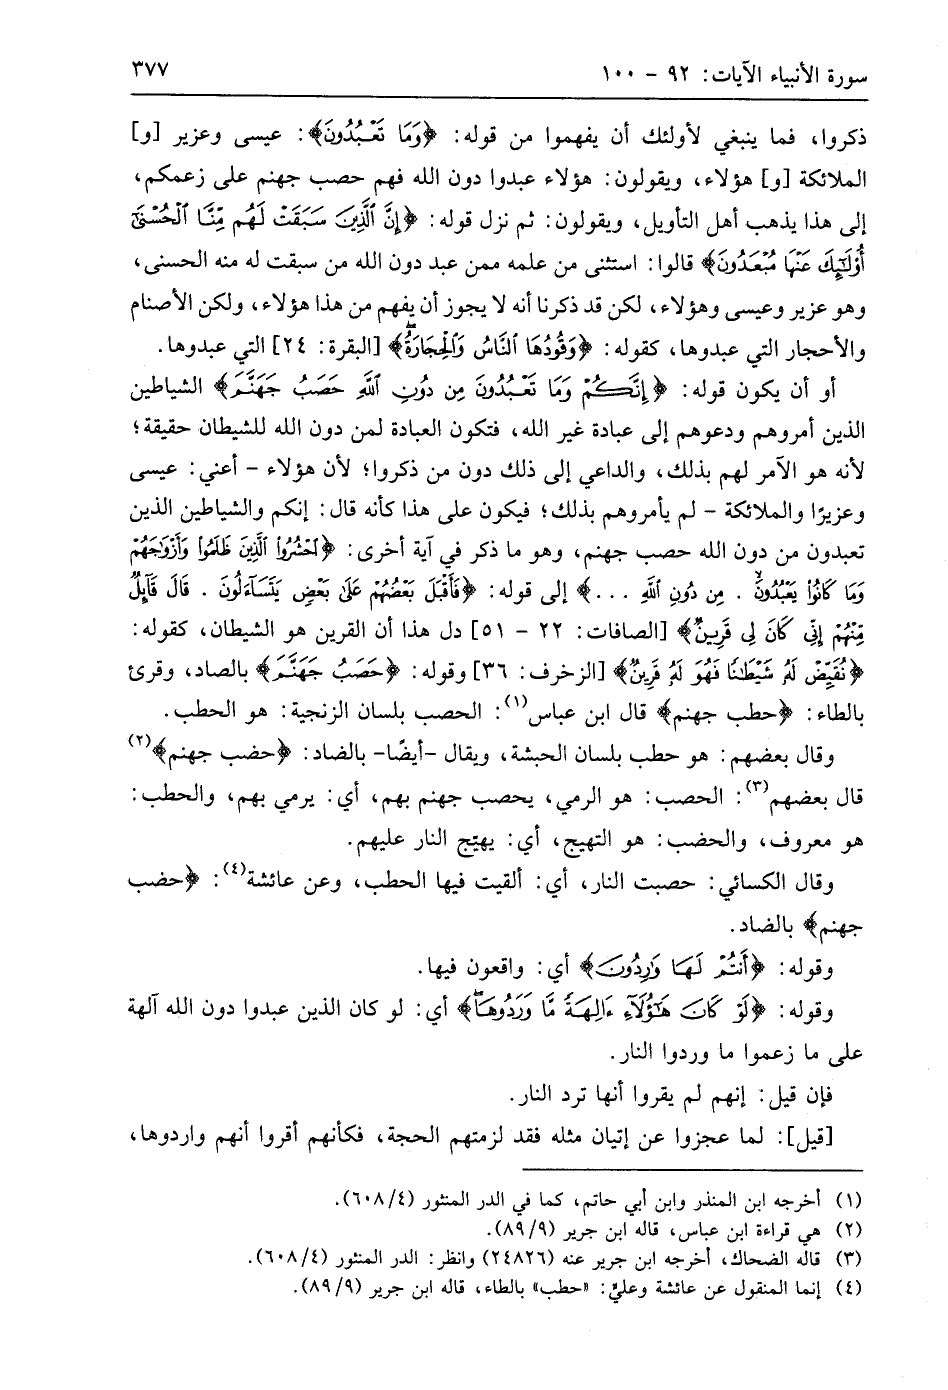 سورة الأنبياء الآيات: ٩٢ - ١٠٠
٣٧٧
ذكروا، فما ينبغي لأولئك أن يفهموا من قوله: ﴿وَمَا تَعْبُدُونَ﴾: عيسى وعزير [و]
الملائكة [و] هؤلاء، ويقولون: هؤلاء عبدوا دون الله فهم حصب جهنم على زعمكم،
إلى هذا يذهب أهل التأويل، ويقولون: ثم نزل قوله: ﴿إِنَّ ٱلَّذِينَ سَبَقَتْ لَهُم مِّنَّا ٱلْحُسْنَىٰٓ
أُوْلَٰٓئِكَ عَنْهَا مُبْعَدُونَ﴾ قالوا: استثنى من علمه ممن عبد دون الله من سبقت له منه الحسنى،
وهو عزير وعيسى وهؤلاء، لكن قد ذكرنا أنه لا يجوز أن يفهم من هذا هؤلاء، ولكن الأصنام
والأحجار التي عبدوها، كقوله: ﴿وَقُودُهَا ٱلنَّاسُ وَٱلْحِجَارَةُۖ﴾ [البقرة: ٢٤] التي عبدوها.
أو أن يكون قوله: ﴿إِنَّكُمْ وَمَا تَعْبُدُونَ مِن دُونِ ٱللَّهِ حَصَبُ جَهَنَّمَ﴾ الشياطين
الذين أمروهم ودعوهم إلى عبادة غير الله، فتكون العبادة لمن دون الله للشيطان حقيقة؛
لأنه هو الآمر لهم بذلك، والداعي إلى ذلك دون من ذكروا؛ لأن هؤلاء - أعني: عيسى
وعزيرًا والملائكة - لم يأمروهم بذلك؛ فيكون على هذا كأنه قال: إنكم والشياطين الذين
تعبدون من دون الله حصب جهنم، وهو ما ذكر في آية أخرى: ﴿ٱحْشُرُوا۟ ٱلَّذِينَ ظَلَمُوا۟ وَأَزْوَٰجَهُمْ
وَمَا كَانُوا۟ يَعْبُدُونَۙ . مِن دُونِ ٱللَّهِ ...﴾ إلى قوله: ﴿فَأَقْبَلَ بَعْضُهُمْ عَلَىٰ بَعْضٍ يَتَسَآءَلُونَ . قَالَ قَآئِلٌ
مِّنْهُمْ إِنِّى كَانَ لِى قَرِينٌ﴾ [الصافات: ٢٢ - ٥١] دل هذا أن القرين هو الشيطان، كقوله:
﴿نُقَيِّضْ لَهُۥ شَيْطَٰنًا فَهُوَ لَهُۥ قَرِينٌ﴾ [الزخرف: ٣٦] وقوله: ﴿حَصَبُ جَهَنَّمَ﴾ بالصاد، وقرئ
بالطاء: ﴿حطب جهنم﴾ قال ابن عباس(١): الحصب بلسان الزنجية: هو الحطب.
وقال بعضهم: هو حطب بلسان الحبشة، ويقال -أيضًا- بالضاد: ﴿حضب جهنم﴾(٢)
قال بعضهم(٣): الحصب: هو الرمي، يحصب جهنم بهم، أي: يرمي بهم، والحطب:
هو معروف، والحضب: هو التهيج، أي: يهيّج النار عليهم.
وقال الكسائي: حصبت النار، أي: ألقيت فيها الحطب، وعن عائشة(٤): ﴿حضب
جهنم﴾ بالضاد.
وقوله: ﴿أَنتُمْ لَهَا وَٰرِدُونَ﴾ أي: واقعون فيها.
وقوله: ﴿لَوْ كَانَ هَٰٓؤُلَآءِ ءَالِهَةً مَّا وَرَدُوهَاۖ﴾ أي: لو كان الذين عبدوا دون الله آلهة
على ما زعموا ما وردوا النار.
فإن قيل: إنهم لم يقروا أنها ترد النار.
[قيل]: لما عجزوا عن إتيان مثله فقد لزمتهم الحجة، فكأنهم أقروا أنهم واردوها،
(١) أخرجه ابن المنذر وابن أبي حاتم، كما في الدر المنثور (٦٠٨/٤).
(٢) هي قراءة ابن عباس، قاله ابن جرير (٨٩/٩).
(٣) قاله الضحاك، أخرجه ابن جرير عنه (٢٤٨٢٦) وانظر: الدر المنثور (٦٠٨/٤).
(٤) إنما المنقول عن عائشة وعليّ: «حطب» بالطاء، قاله ابن جرير (٨٩/٩).